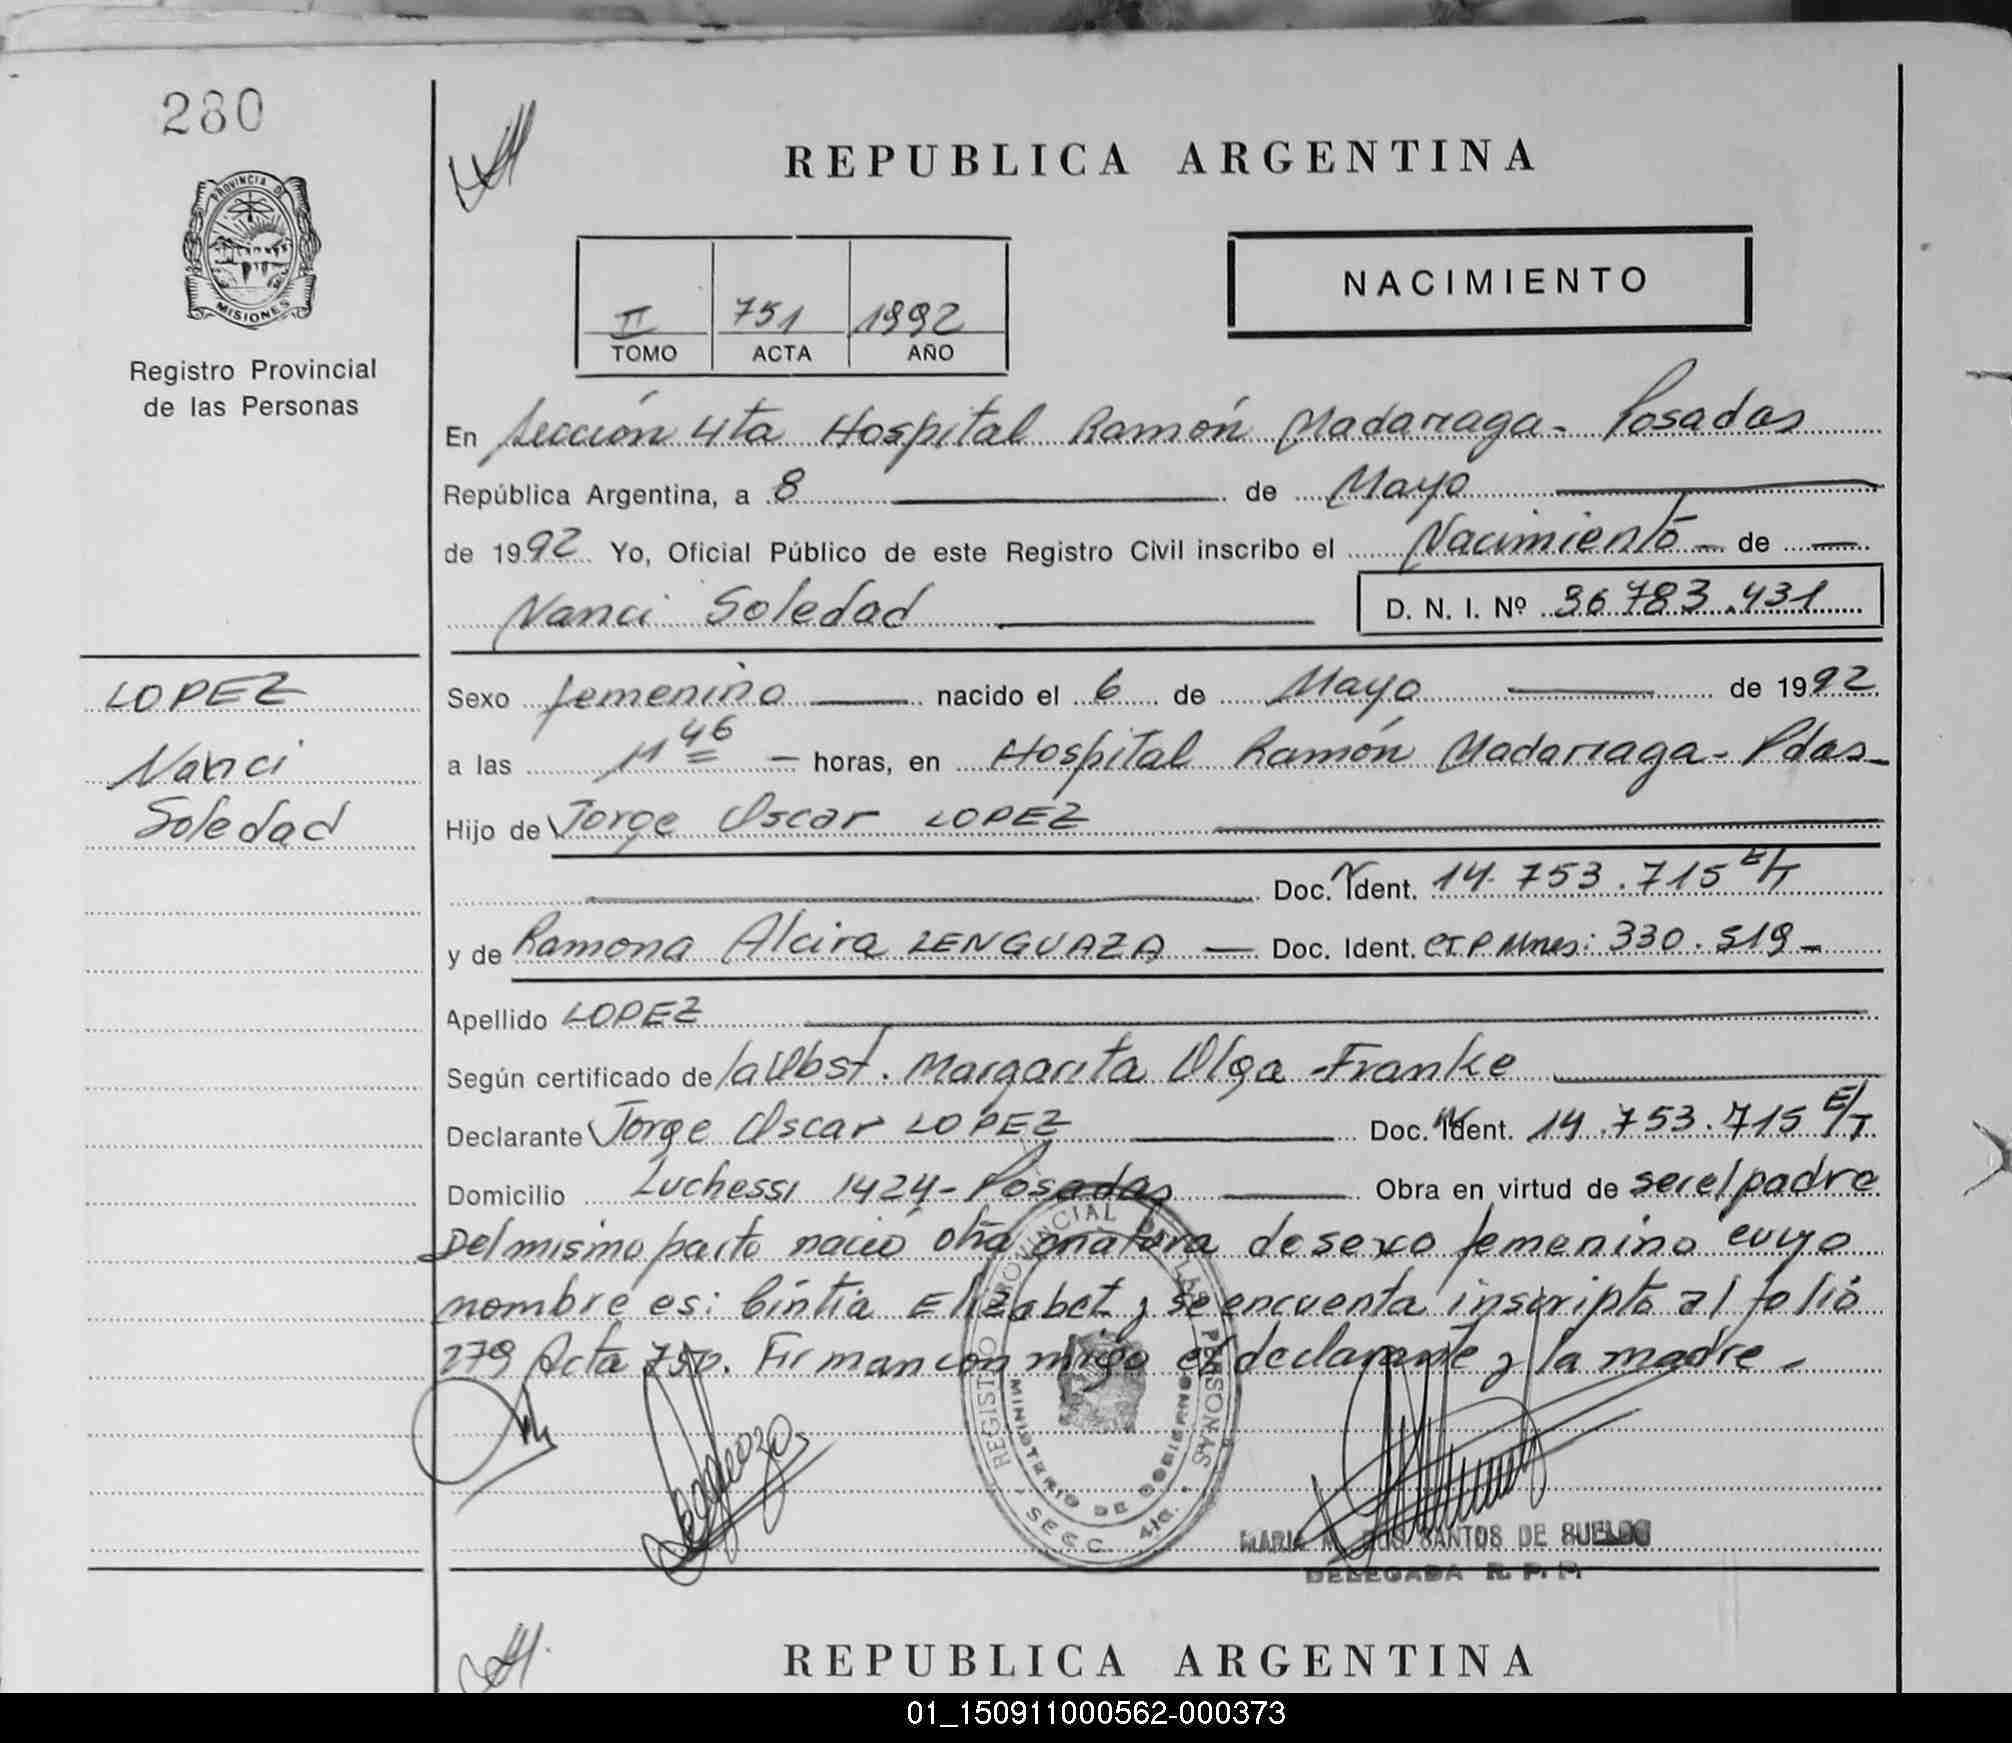 280
REPUBLICA ARGENTINA
PROVINCIA DE
MISIONES
Registro Provincial
de las Personas
II 751 1992
TOMO ACTA AÑO
NACIMIENTO
En Sección 4ta Hospital Ramón Madariaga - Posadas
República Argentina, a 8 de Mayo
de 1992 Yo, Oficial Público de este Registro Civil inscribo el Nacimiento - de
Nanci Soledad D. N. I. Nº 36783.431
LOPEZ
Nanci
Soledad
Sexo femenino nacido el 6 de Mayo de 1992
a las 11 46 horas, en Hospital Ramón Madariaga - Pdas -
Hijo de Jorge Oscar LOPEZ
Doc. Ident. 14.753.715 E/T
y de Ramona Alcira LENGUAZA Doc. Ident. 330.519 -
Apellido LOPEZ
Según certificado de la Obst. Margarita Olga Franke
Declarante Jorge Oscar LOPEZ Doc. Ident. 14.753.715 E/T
Domicilio Luchessi 1424 - Posadas Obra en virtud de ser el padre
Del mismo parto nació otra criatura de sexo femenino cuyo
nombre es: Cintia Elizabet y se encuenta inscripto al folio
279 Acta 750. Firman conmigo el declarante y la madre -
REGISTRO PROVINCIAL DE LAS PERSONAS
MINISTERIO DE GOBIERNO
SECC. 4ta.
DOS SANTOS DE SUELDO
DELEGADA R. P. P.
REPUBLICA ARGENTINA
01_150911000562-000373